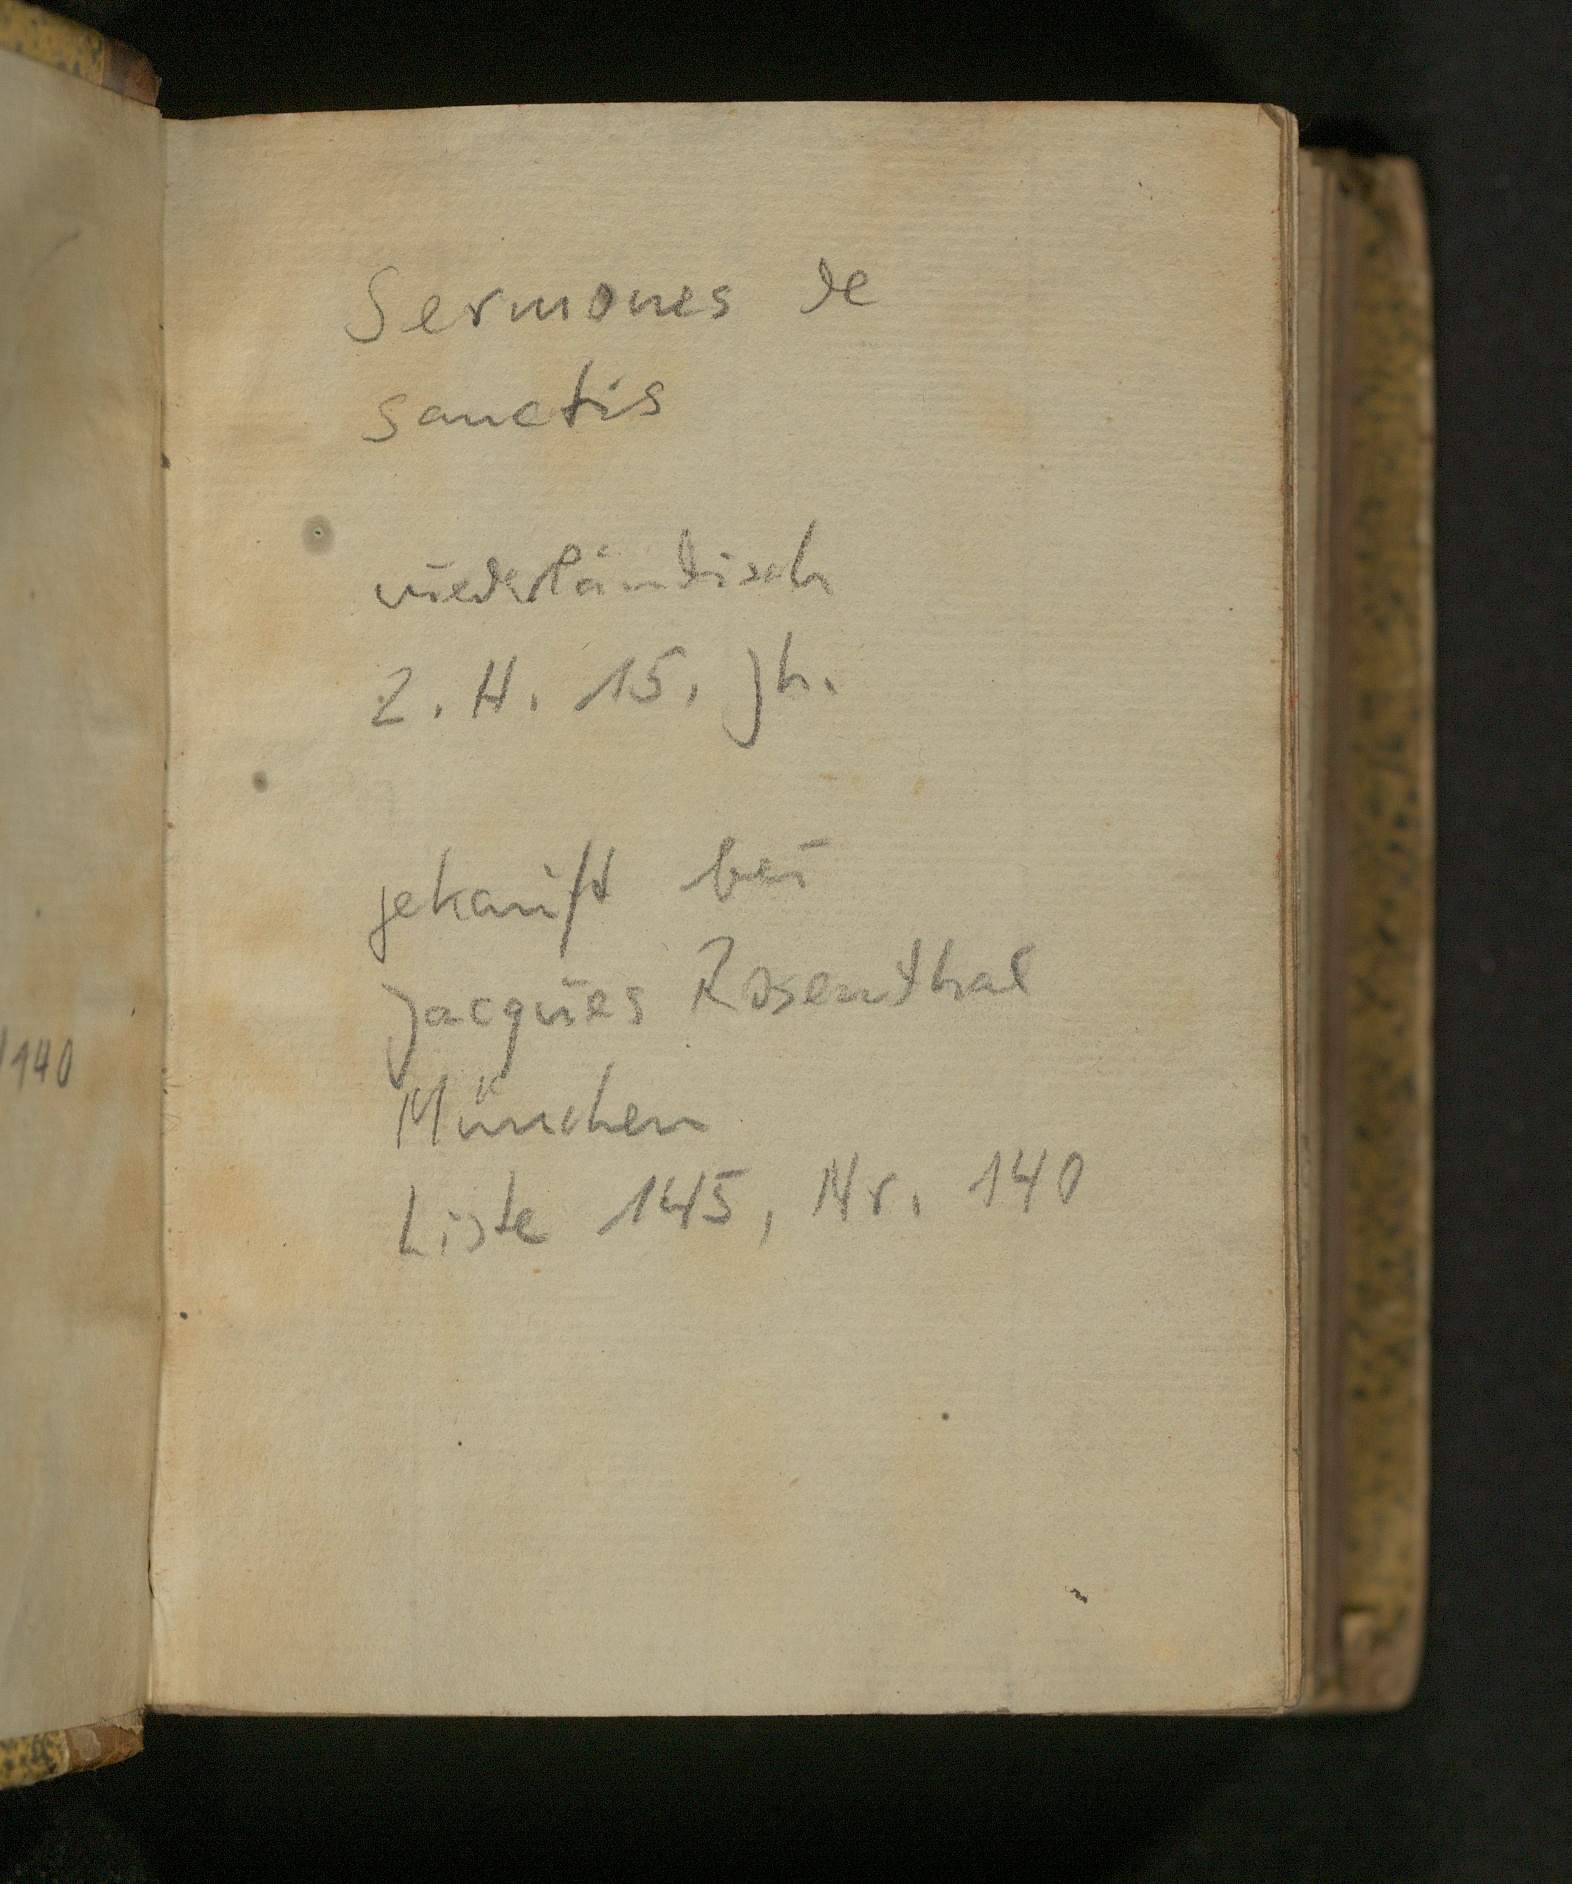 /140
Sermones de
sanctis
niederländisch
2. H. 15. Jh.
gekauft bei
Jacques Rosenthal
München
Liste 145, Nr. 140